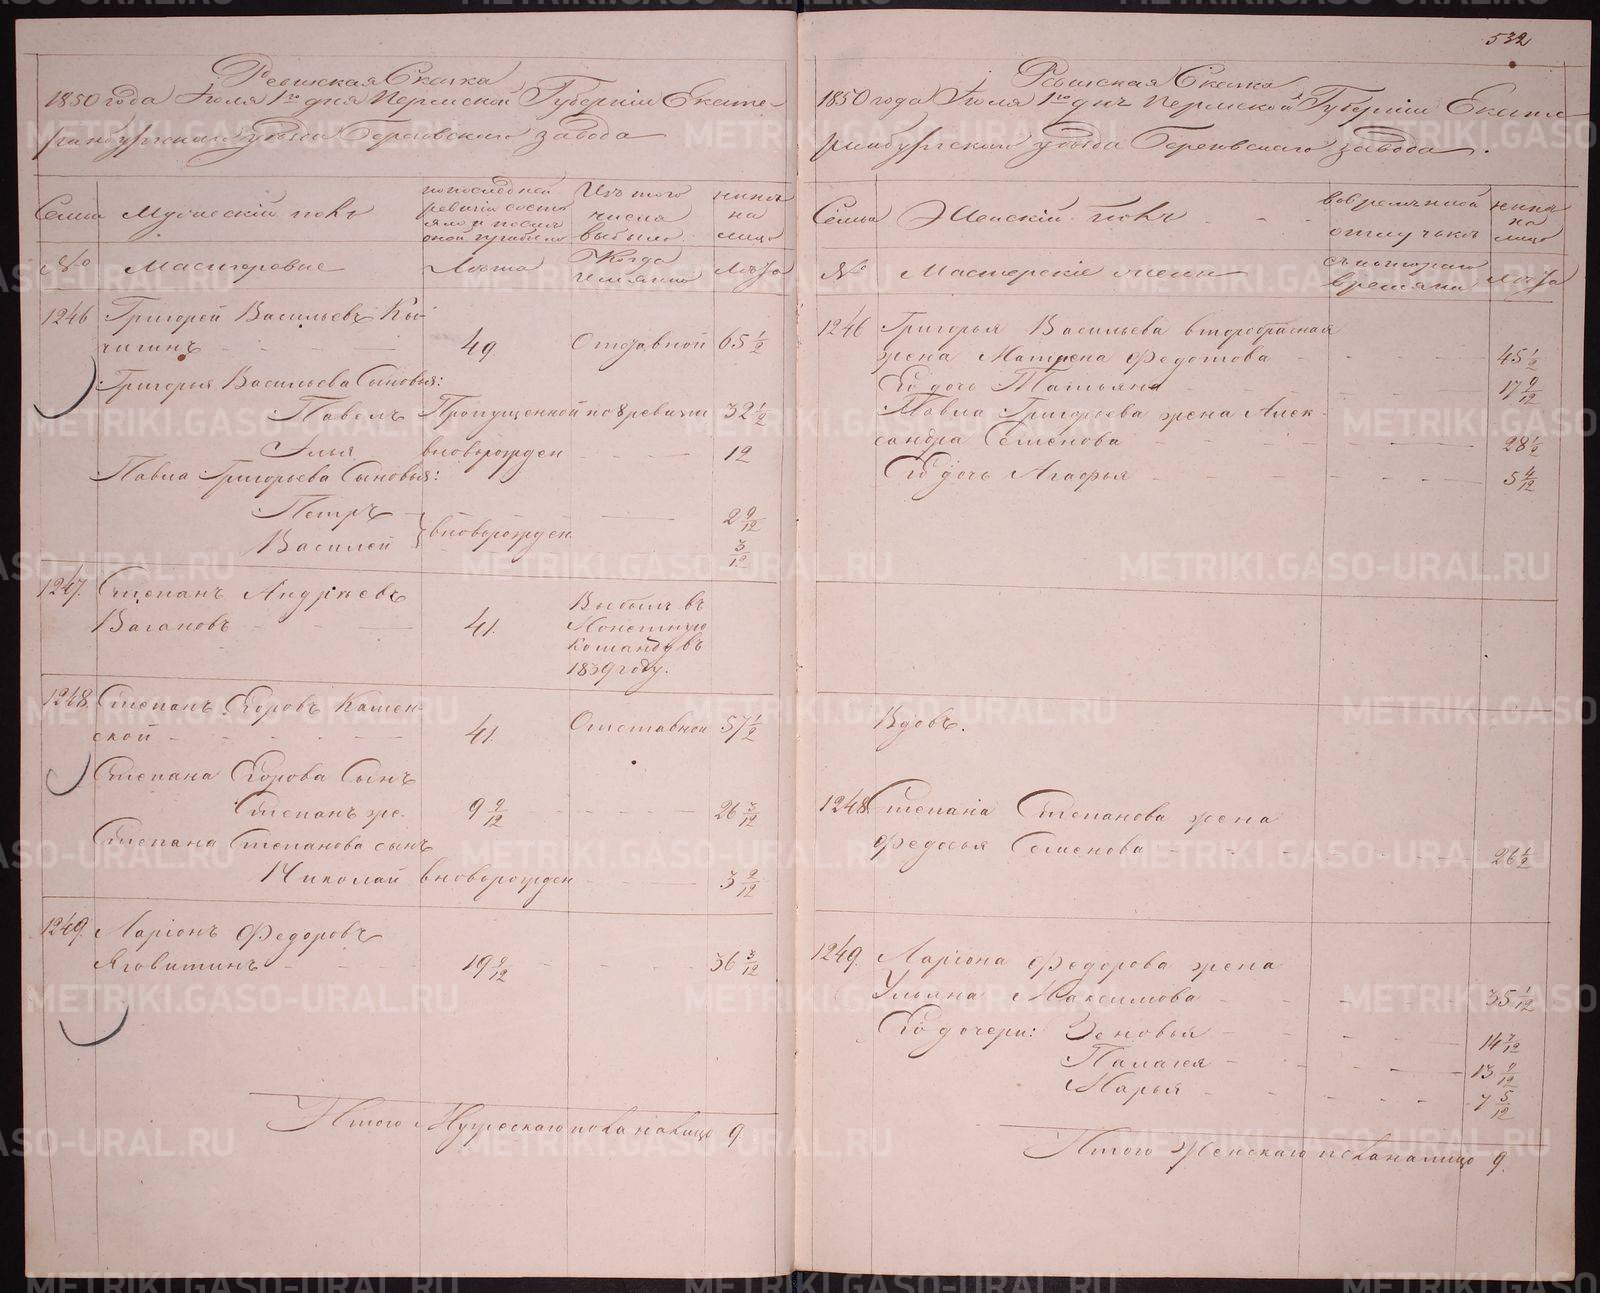 532
Ревижская Скажка
1850 года Іюля 1го дня Пермской Губерніи Екате-
ринбургскаго уѣзда Березовскаго завода
Семьи Мужескій полъ
по последней ревизіи состояло и после оной прибыло
Изъ того числа выбыло
ныне на лицо
№ Мастеровые
Лѣта
Когда именно
Лѣта
1246 Григорей Васильевъ Кы-
чигинъ 49 Отставной 65 1/2
Григорья Васильева Сыновья:
Павелъ Пропущенной по 8 ревизіи 32 1/2
Илья вновьрожден 12
Павла Григорьева Сыновья:
Петръ 2 9/12
Василей вновьрожден 3/12
1247. Степанъ Андреевъ
Вагановъ 41. Выбылъ въ Монетную команду въ 1839 году.
1248. Степанъ Егоровъ Камен-
ской 41. Отставной 57 1/2
Степана Егорова Сынъ
Степанъ же 9 9/12 26 3/12
Степана Степанова сынъ
Николай вновьрожден 3 2/12
1249. Ларіонъ Федоровъ
Яговитинъ 19 9/12 36 3/12
Итого Мужескаго пола на лицо 9.
Ревижская Скажка
1850 года Іюля 1го дня Пермской Губерніи Екате
ринбургскаго уѣзда Березовскаго завода.
Семьи Женскій полъ
во временной отлучькѣ
ныне на лицо
№ Мастерскіе жены
съ котораго времяни
Лѣта
1246 Григорья Васильева второбрачная
жена Матрена Федотова 45 1/2
Его дочь Татьяна 17 9/12
Павла Григорьева жена Алек-
сандра Семенова 28 1/2
Его дочь Агафья 5 4/12
Вдовъ.
1248. Степана Степанова жена
Федосья Семенова 26 1/2
1249. Ларіона Федорова жена
Ульяна Максимова 35 1/12
Его дочери: Зеновья 14 7/12
Палагея 13 9/12
Марья 7 5/12
Итого Женскаго пола на лицо 9.
METRIKI.GASO-URAL.RU